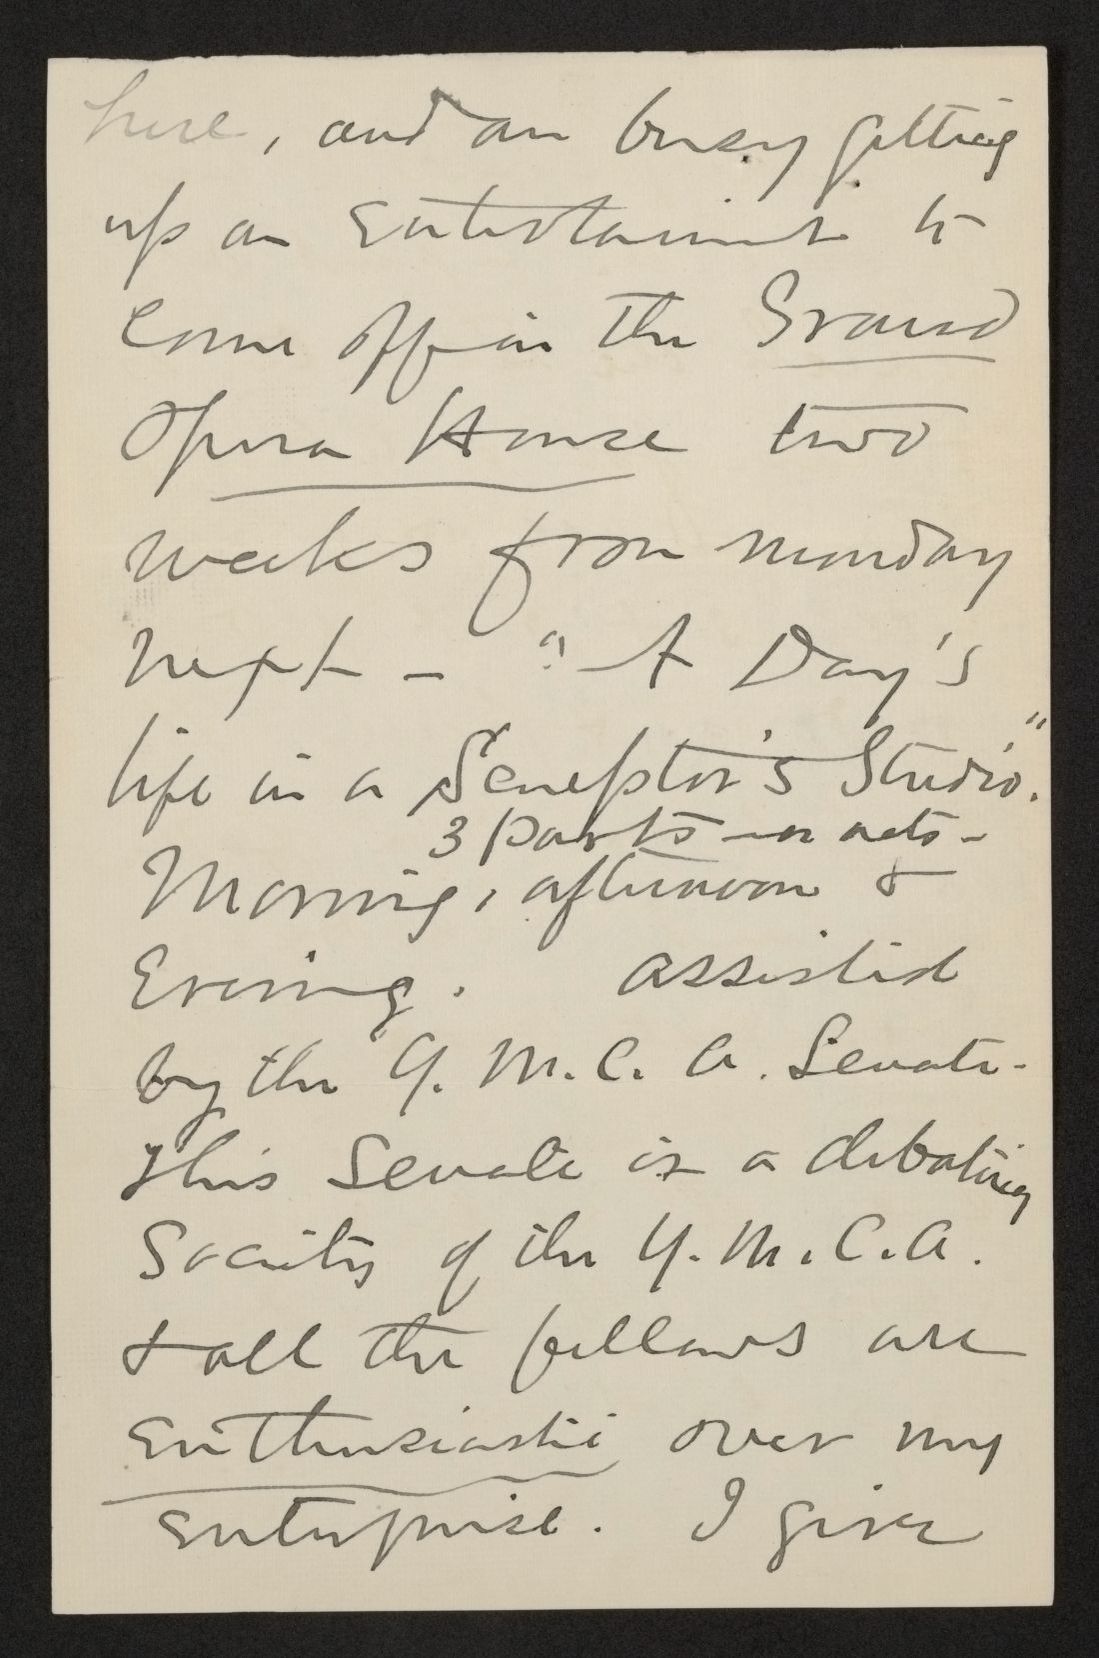 here, and am busy getting
up an Entertainment to
Come off in the Grand
Opera House two
weeks from Monday
next - "A Day's
life in a Sculptor's Studio."
3 parts - or acts -
Morning, afternoon &
Evening. assisted
by the Y. M. C. A. Senate -
This Senate is a debating
Society of the Y. M. C. A.
& all the fellows are
Enthusiastic over my
Enterprise. I give